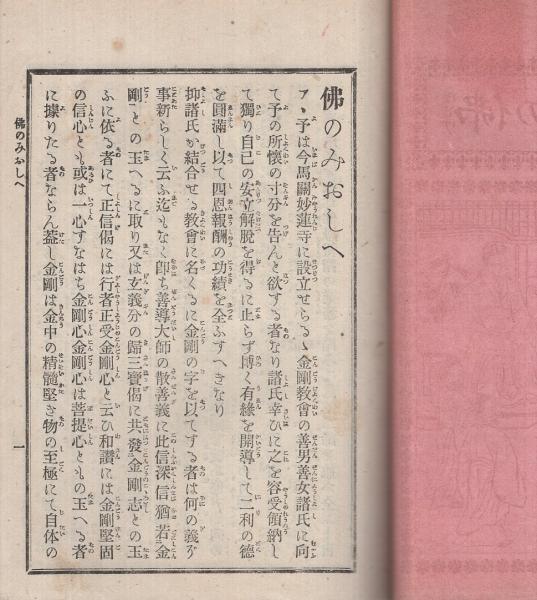 佛のみおしへ
アヽ予は今馬關妙蓮寺に設立せらるゝ金剛教會の善男善女諸氏に向
て予の所懷の寸分を告んと欲する者なり諸氏幸ひに之を容受領納し
て獨り自己の安立解脫を得るに止らず博く有緣を開導して二利の德
を圓滿し以て四恩報酬の功績を全ふすへきなり
抑諸氏か結合せる教會に名くるに金剛の字を以てする者は何の義ぞ
事新らしく云ふ迄もなく卽ち善導大師の散善義に此信深信猶若金
剛との玉へるに取り又は玄義分の歸三寶偈に共發金剛志との玉
ふに依る者にて正信偈には行者正受金剛心と云ひ和讃には金剛堅固
の信心とも或は一心すなはち金剛心金剛心は菩提心ともの玉へる者
に據りたる者ならん葢し金剛は金中の精髓堅き物の至極にて自体の
佛のみおしへ
一